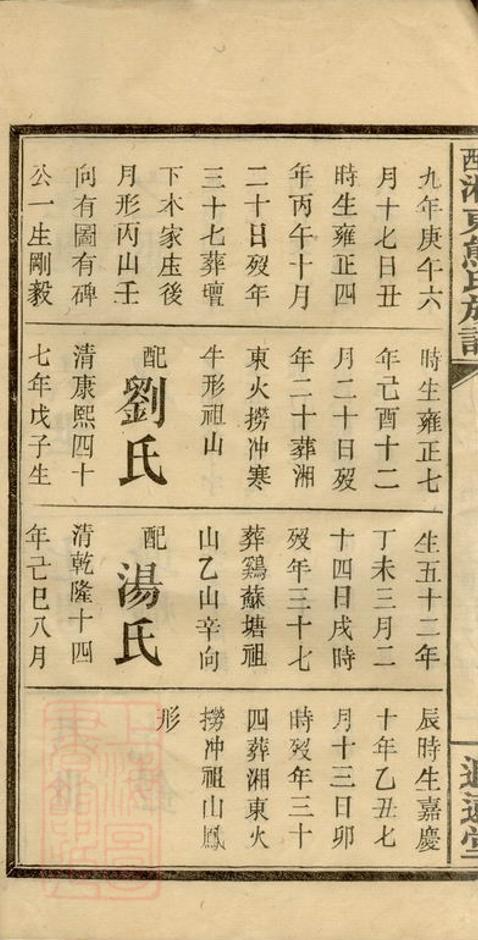 九年庚午六
月十七日丑
時生雍正四
年丙午十月
二十日歿年
三十七葬壇
下木家㘴後
月形丙山壬
向有圖有碑
公一生剛毅
時生雍正七
年己酉十二
月二十日歿
年二十葬湘
東火撈冲寒
牛形祖山
配劉氏
清康熙四十
七年戊子生
生五十二年
丁未三月二
十四日戌時
歿年三十七
葬鷄蘇塘祖
山乙山辛向
配湯氏
清乾隆十四
年己巳八月
辰時生嘉慶
十年乙丑七
月十三日卯
時歿年三十
四葬湘東火
撈冲祖山鳳
形
湘東熊氏族譜